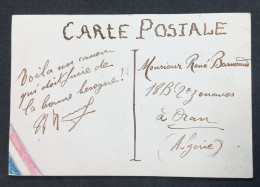 CARTE POSTALE
Voilà un canon
qui doit faire de
la bonne besogne !
Monsieur René
18B 2e zouaves
à Oran
(Algérie)